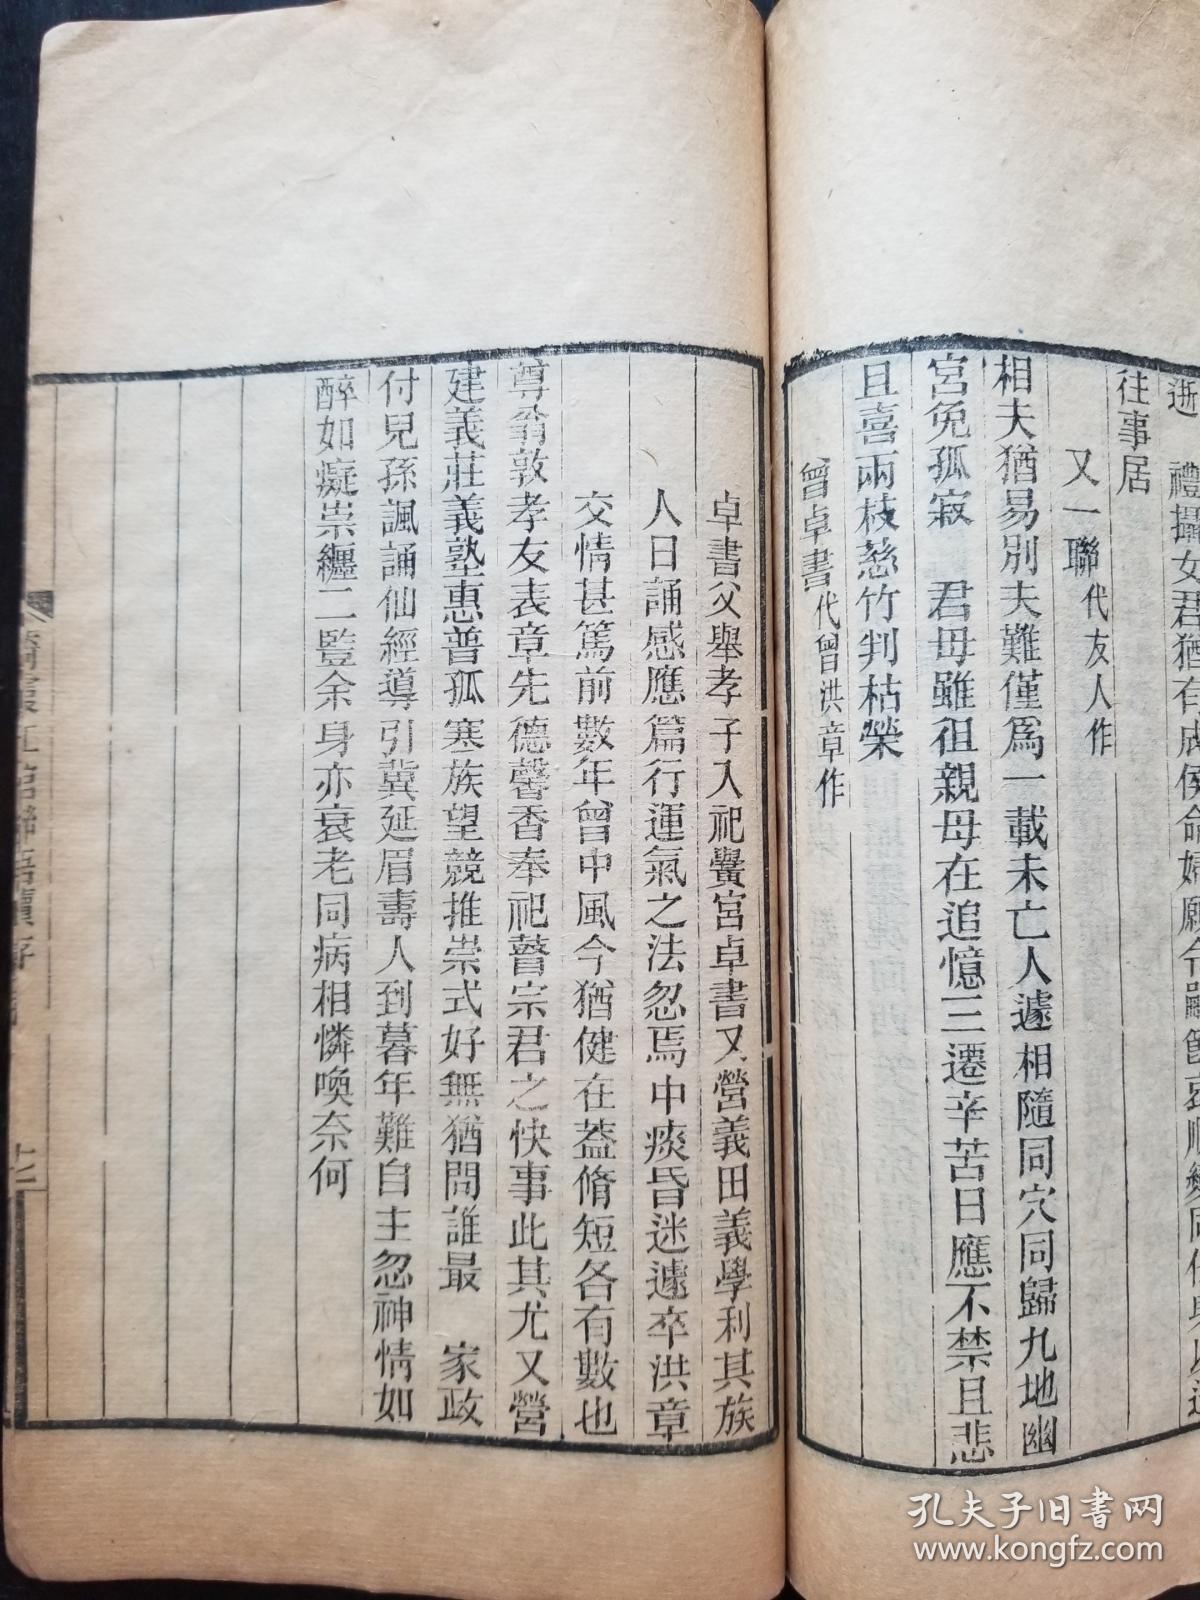 逝
禮攝女君猶有
往事居
又一聯代友人作
相夫猶易別夫難僅爲一載未亡人遽相隨同穴同歸九地幽
宮免孤寂　君母雖徂親母在追憶三遷辛苦日應不禁且悲
且喜兩枝慈竹判枯榮
曾卓書代曾洪章作
卓書父舉孝子入祀黌宮卓書又營義田義學利其族
人日誦感應篇行運氣之法忽焉中痰昏迷遽卒洪章
交情甚篤前數年曾中風今猶健在葢脩短各有數也
尊翁敦孝友表章先德馨香奉祀瞽宗君之快事此其尤又營
建義莊義塾惠普孤寒族望競推崇式好無猶問誰最　家政
付兒孫諷誦仙經導引冀延眉壽人到暮年難自主忽神情如
醉如癡祟纏二豎余身亦衰老同病相憐喚奈何
孔夫子旧书网
www.kongfz.com